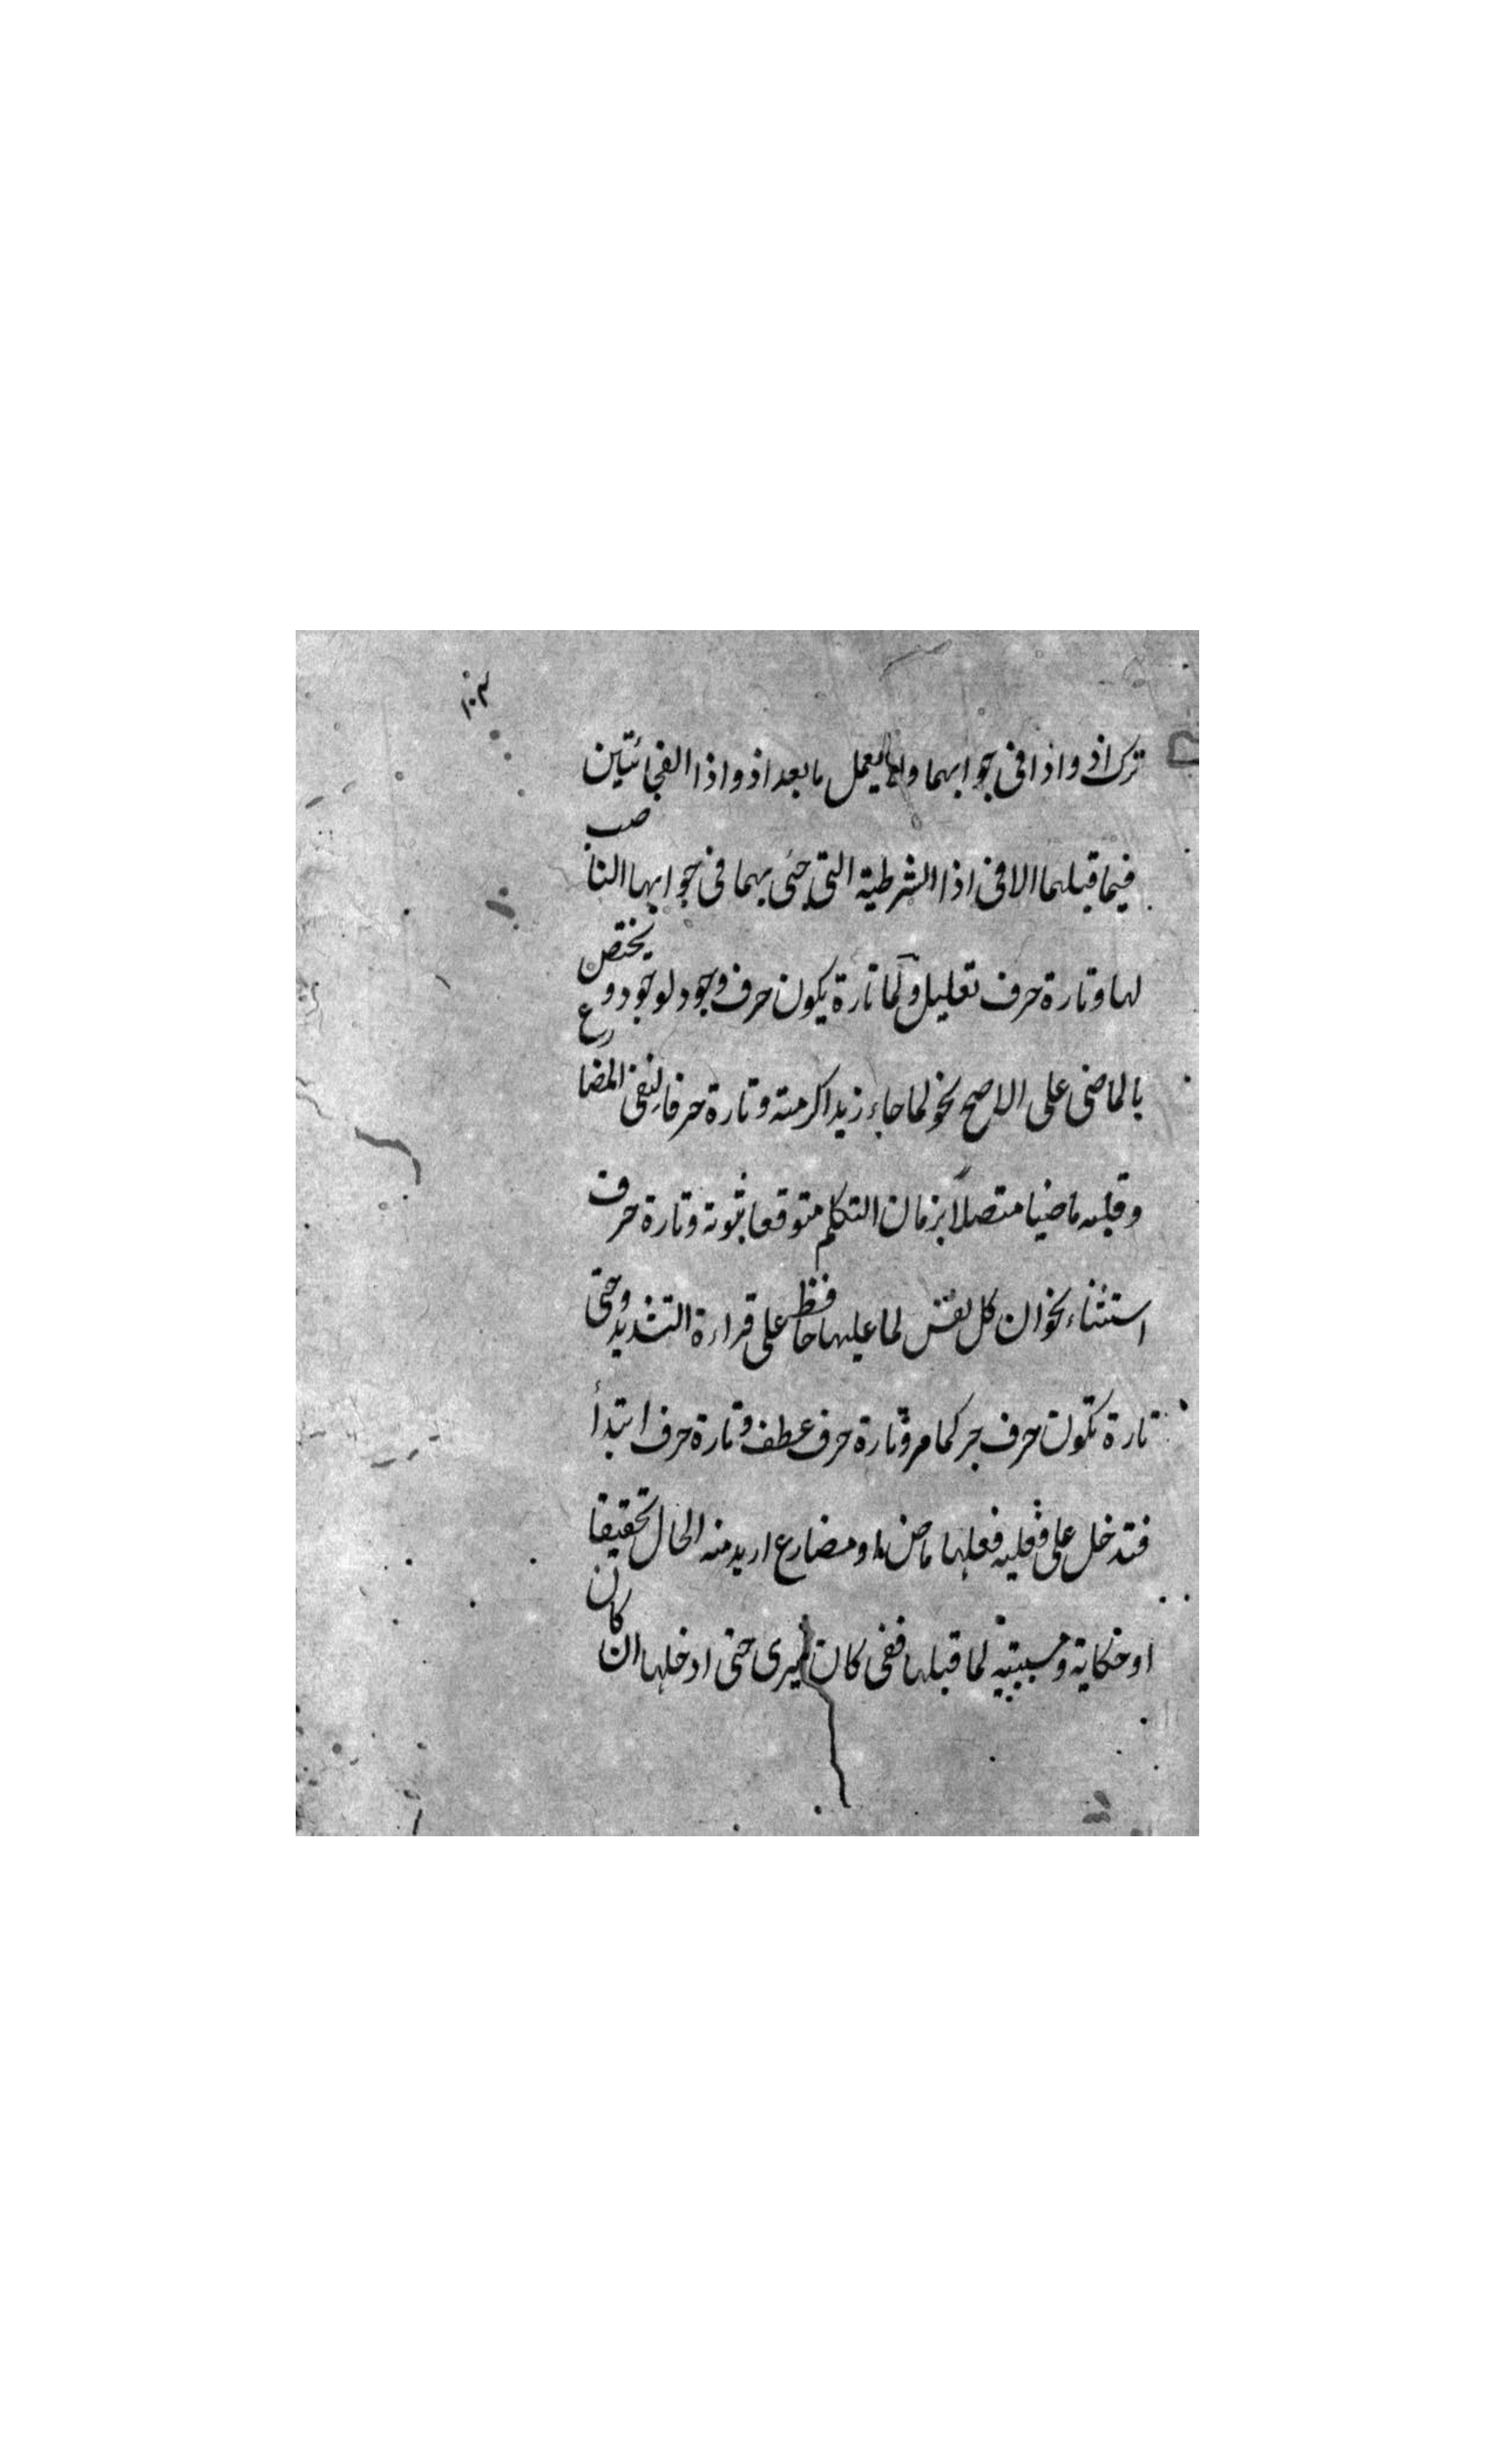 ١٠٣
ترك اذ واذا فى جوابهما ولا يعمل مابعد اذ واذا الفجائتين
فيما قبلهما الا فى اذا الشرطية التى جئى بهما فى جوابها الناصب
لها وتارة حرف تعليل ولما تارة يكون حرف وجود لوجود ويختص
بالماضى على الاصح نحو لما جاء زيد اكرمته وتارة حرفا لنفى المضارع
وقلبه ماضيا متصلا بزمان التكلم متوقعا ثبوته وتارة حرف
استثناء نحو ان كل نفس لما عليها حافظ على قراءة التشديد وحتى
تارة تكون حرف جر كما مر وتارة حرف عطف وتارة حرف ابتدأ
فتدخل على فعليه فعلها ماض او مضارع اريد منه الحال تحقيقا
او حكاية ومسببيته لما قبلها ففى كان سيرى حتى ادخلها ان كان